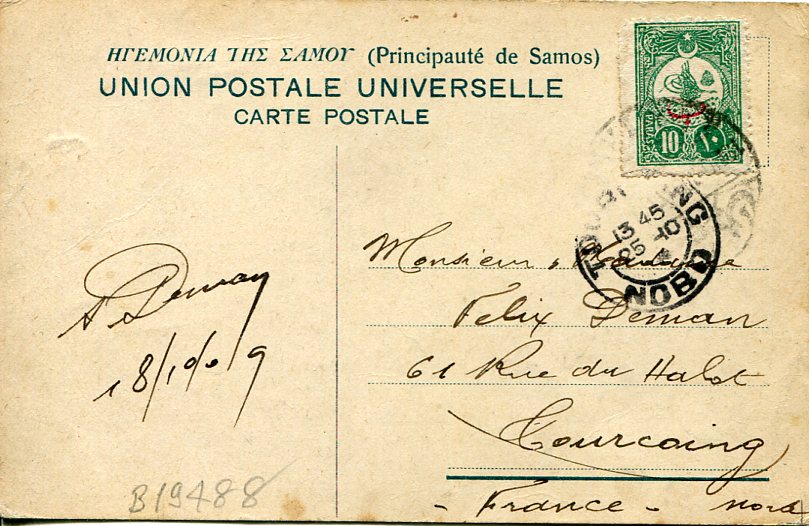 ΗΓΕΜΟΝΙΑ ΤΗΣ ΣΑΜΟΥ (Principauté de Samos)
UNION POSTALE UNIVERSELLE
CARTE POSTALE
10 PARAS ١٠
TOURCOING
13 45
25 -10
NORD
Monsieur & Madame
Felix Deman
61 Rue du Halot
Tourcoing
- France - Nord
A. Deman
18/10/09
B19488